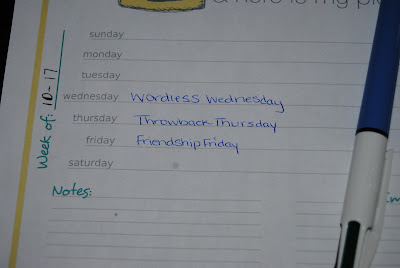 & here is my
sunday
monday
tuesday
wednesday Wordless Wednesday
thursday Throwback Thursday
friday Friendship Friday
saturday
Week of: 10-17
Notes: